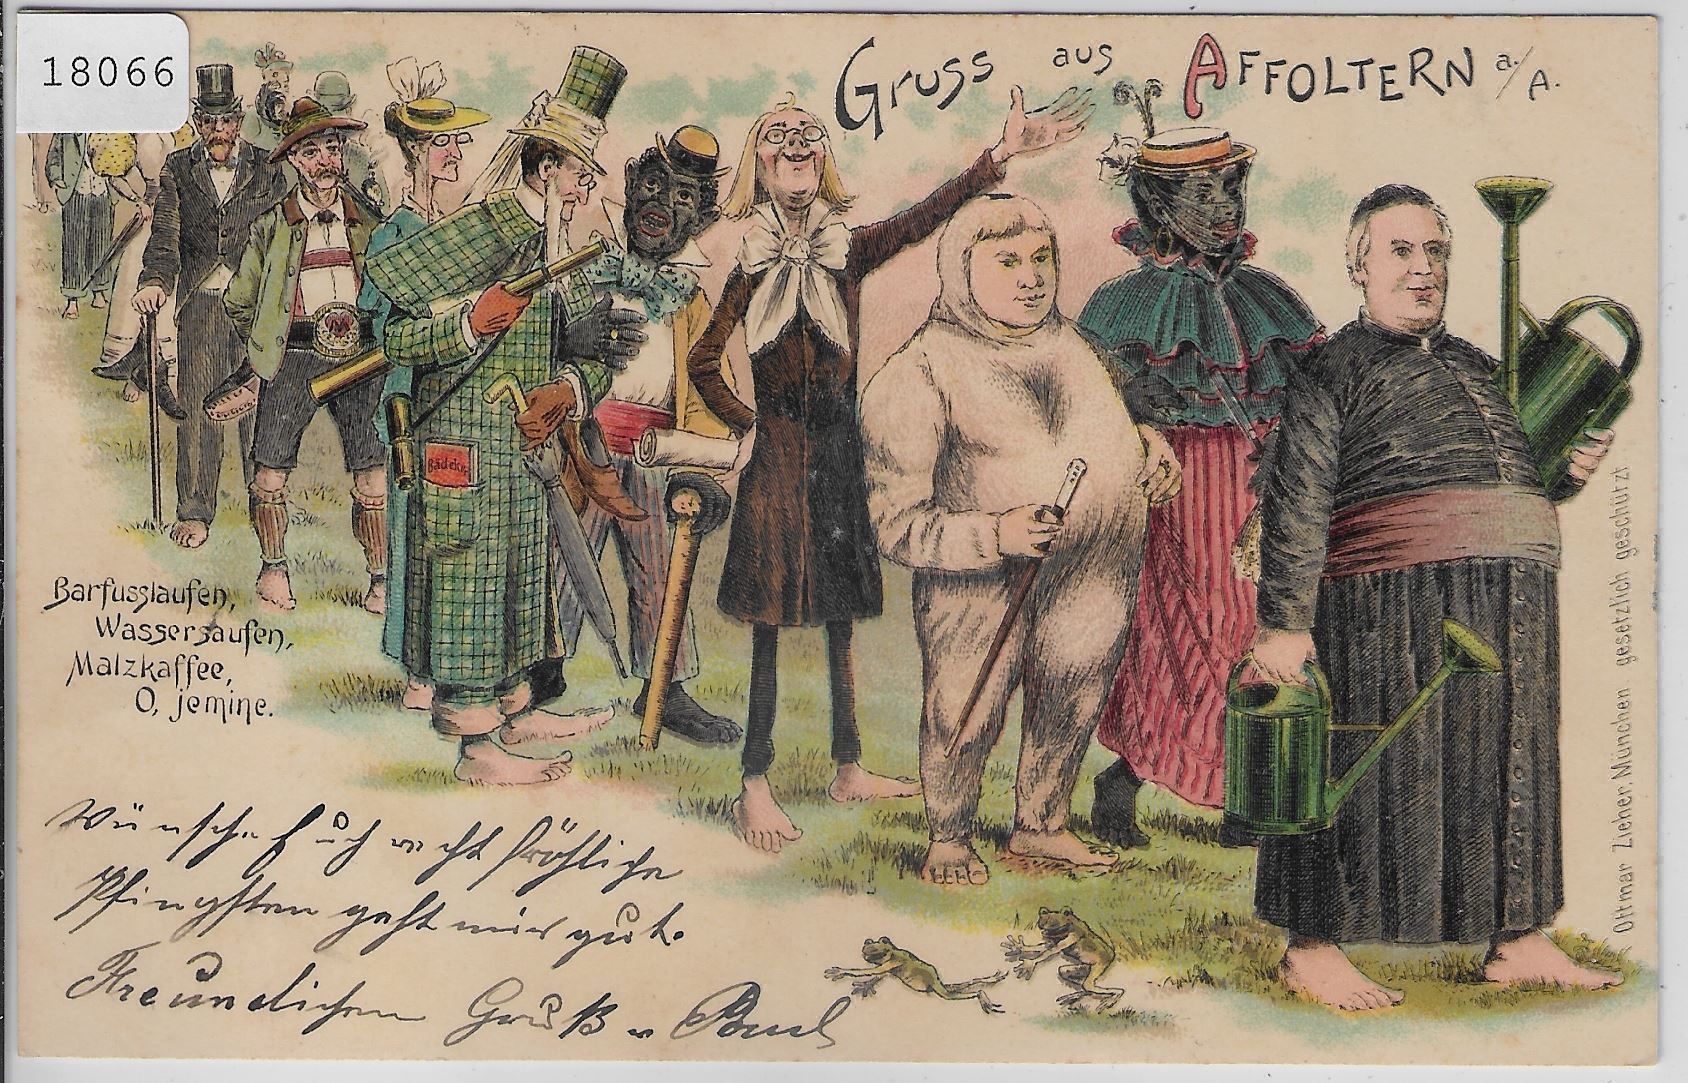 18066
Gruss aus AFFOLTERN a./A.
Bädeker
Barfusslaufen,
Wassersaufen,
Malzkaffee,
O, jemine.
Wünsche Euch recht fröhliche
Pfingsten geht mir gut.
Freundlichen Gruß v. Paul
Ottmar Zieher, München. gesetzlich geschützt